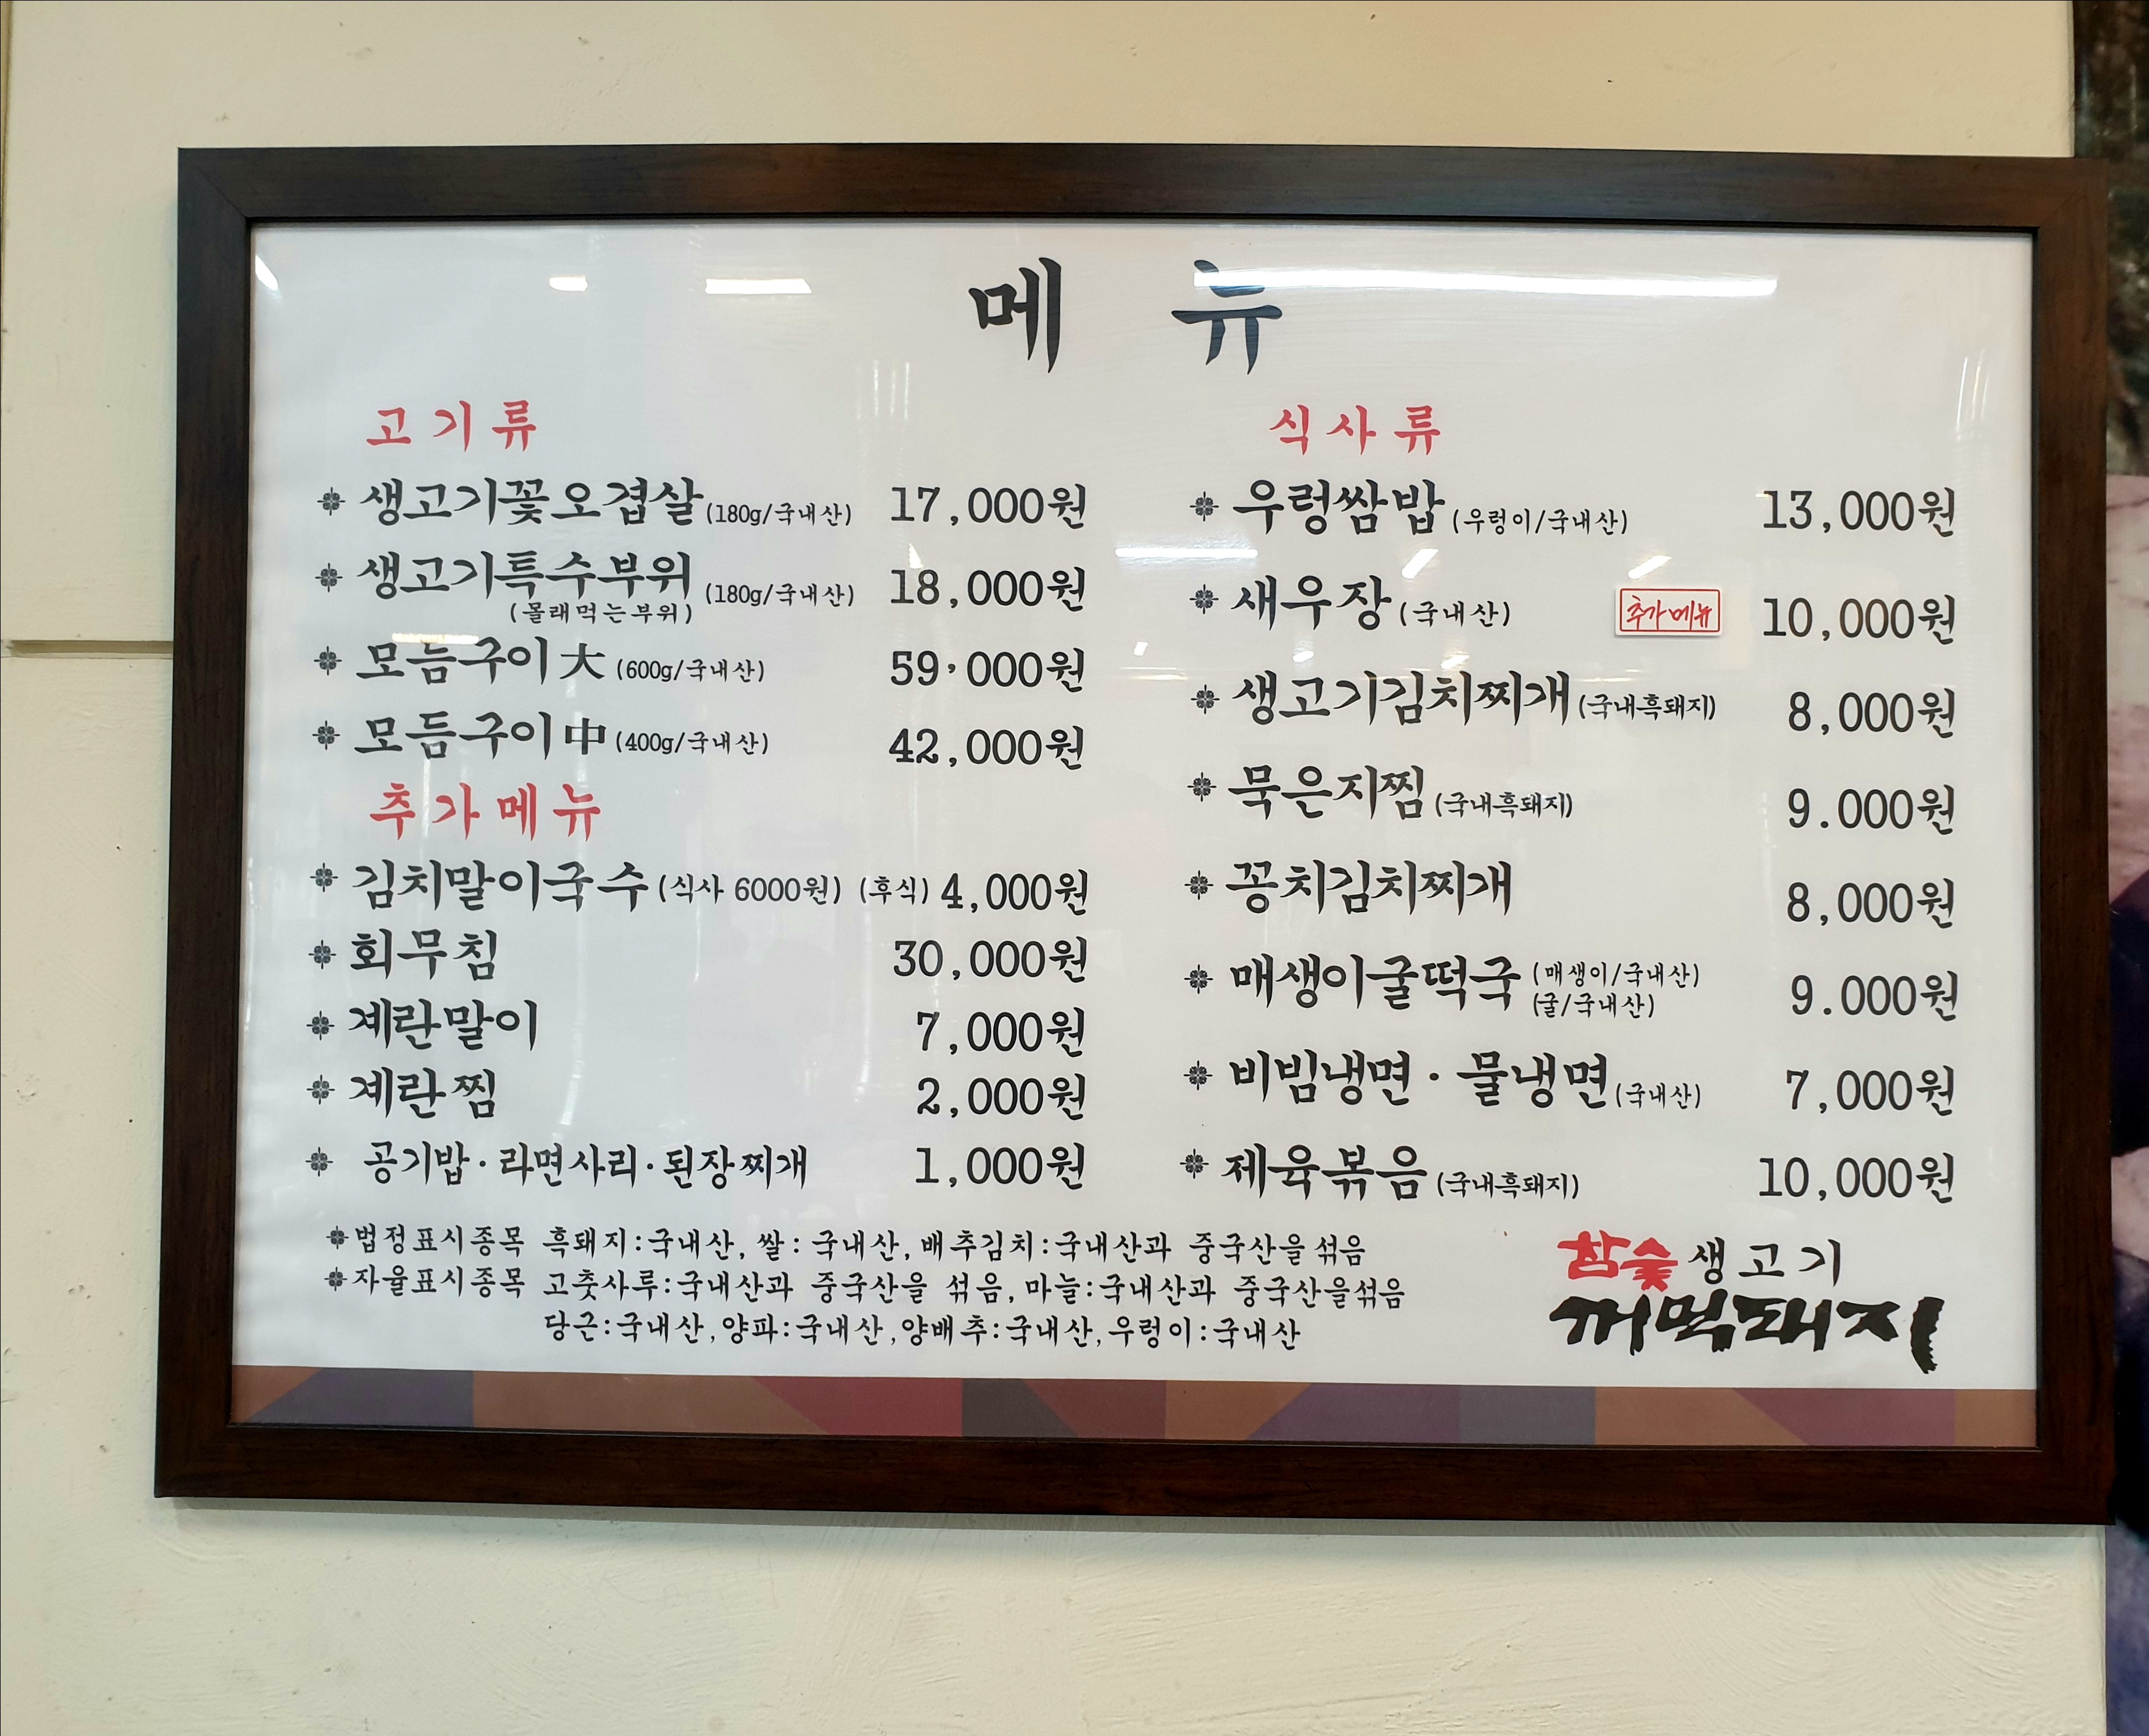 메 뉴
고기류
생고기꽃오겹살(180g/국내산) 17,000원
생고기특수부위(180g/국내산) 18,000원
(몰래먹는부위)
모듬구이大(600g/국내산) 59,000원
모듬구이中(400g/국내산) 42,000원
추가메뉴
김치말이국수(식사 6000원) (후식) 4,000원
회무침 30,000원
계란말이 7,000원
계란찜 2,000원
공기밥·라면사리·된장찌개 1,000원
식사류
우렁쌈밥(우렁이/국내산) 13,000원
새우장(국내산) 추가메뉴 10,000원
생고기김치찌개(국내흑돼지) 8,000원
묵은지찜(국내흑돼지) 9.000원
꽁치김치찌개 8,000원
매생이굴떡국(매생이/국내산) 9.000원
(굴/국내산)
비빔냉면·물냉면(국내산) 7,000원
제육볶음(국내흑돼지) 10,000원
법정표시종목 흑돼지:국내산, 쌀: 국내산, 배추김치:국내산과 중국산을섞음
자율표시종목 고춧사루:국내산과 중국산을 섞음, 마늘:국내산과 중국산을섞음
당근:국내산,양파:국내산,양배추:국내산,우렁이:국내산
참숯생고기
꺼먹돼지